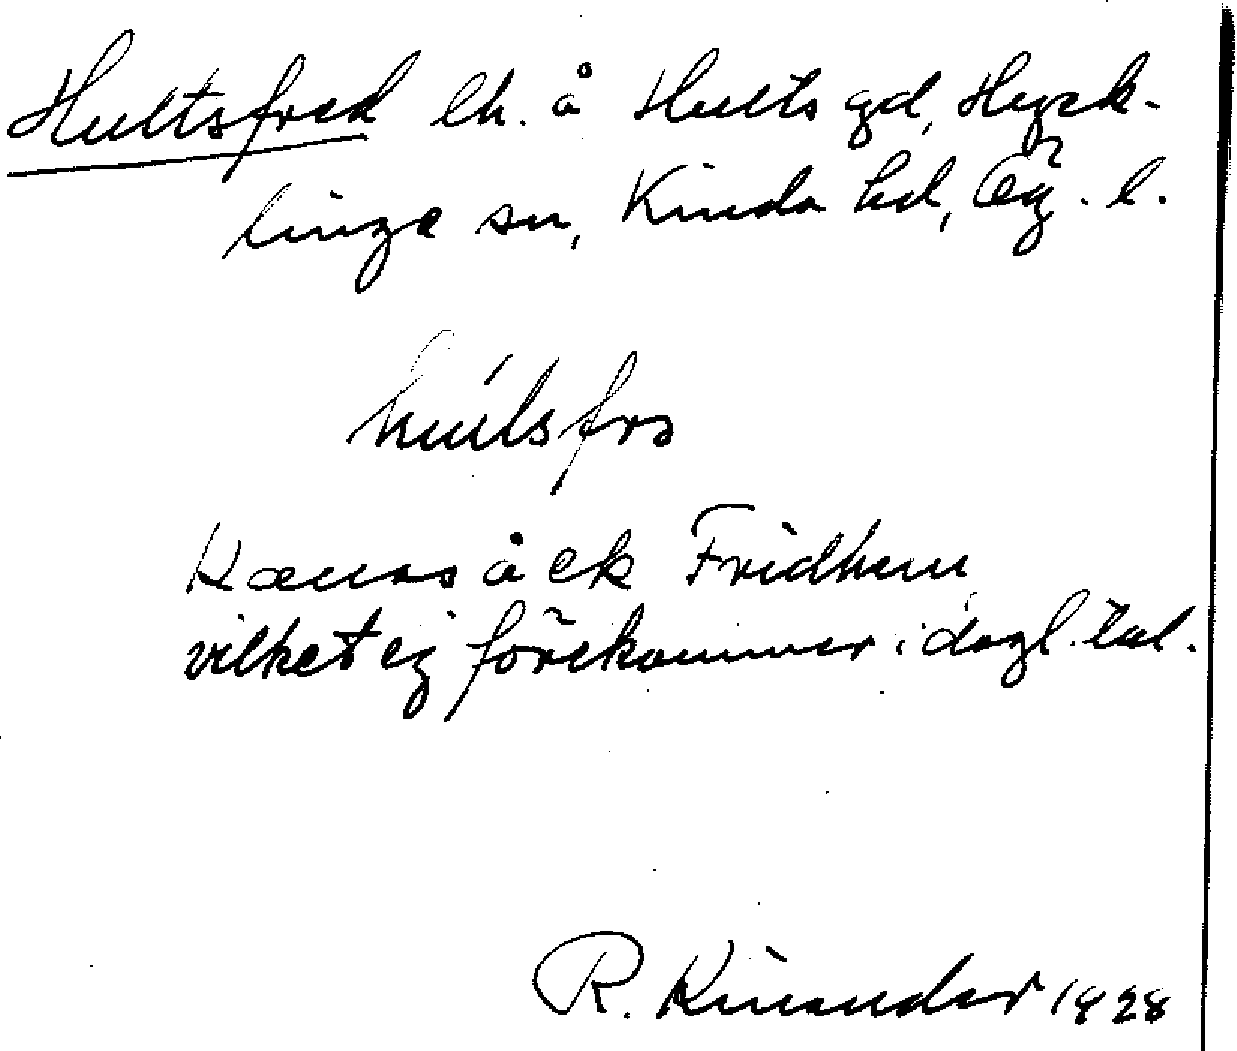 Hultsfred lh. å Hults gd, Hyck-
linge sn, Kinda hd, Ög. l.
húlsfrs
Kallas åck Fridhem
vilket ej förekommer i dagl. tal.
R. Kinander 1928